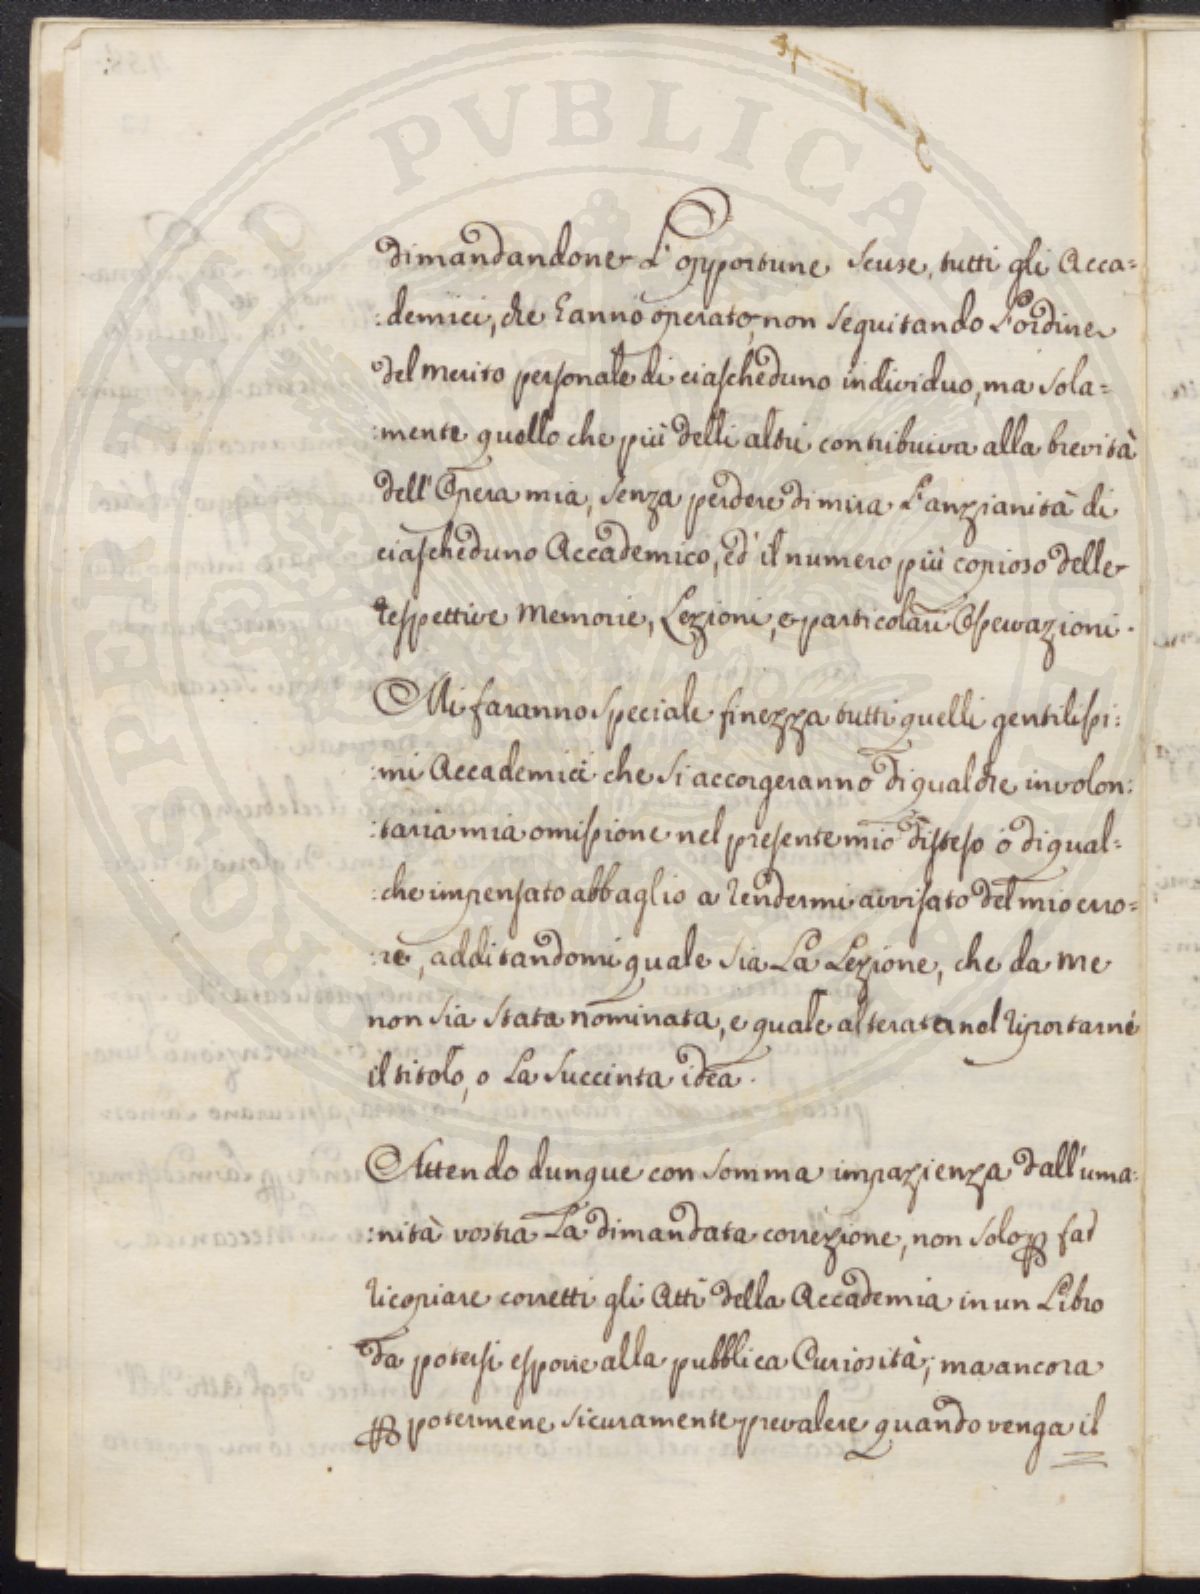 dimandandone L'opportune scuse, tutti gli Acca=
:demici, che hanno operato, non seguitando L'ordine
del merito personale di ciascheduno individuo, ma sola=
:mente quello che più delli altri contribuiva alla brevità
dell'Opera mia, senza perdere di mira L'anzianità di
ciascheduno Accademico, ed' il numero più copioso delle
respettive Memorie, Lezioni, e particolari Osservazioni.
Mi faranno speciale finezza tutti quelli gentilissi:
:mi Accademici che si accorgeranno di qualche involon:
:taria mia omissione nel presente mio disteso ò di qual=
:che impensato abbaglio a rendermi avvisato del mio erro=
:re, additandomi quale sia La Lezione, che da me
non sia stata nominata, e quale alterata nel riportarne
il titolo, o La succinta idea.
Attendo dunque con somma impazienza dall'uma:
:nità vostra La dimandata correzione, non solo per far
ricopiare corretti gli Atti della Accademia in un Libro
da potersi esporre alla pubblica Curiosità; ma ancora
per potermene sicuramente prevalere quando venga il